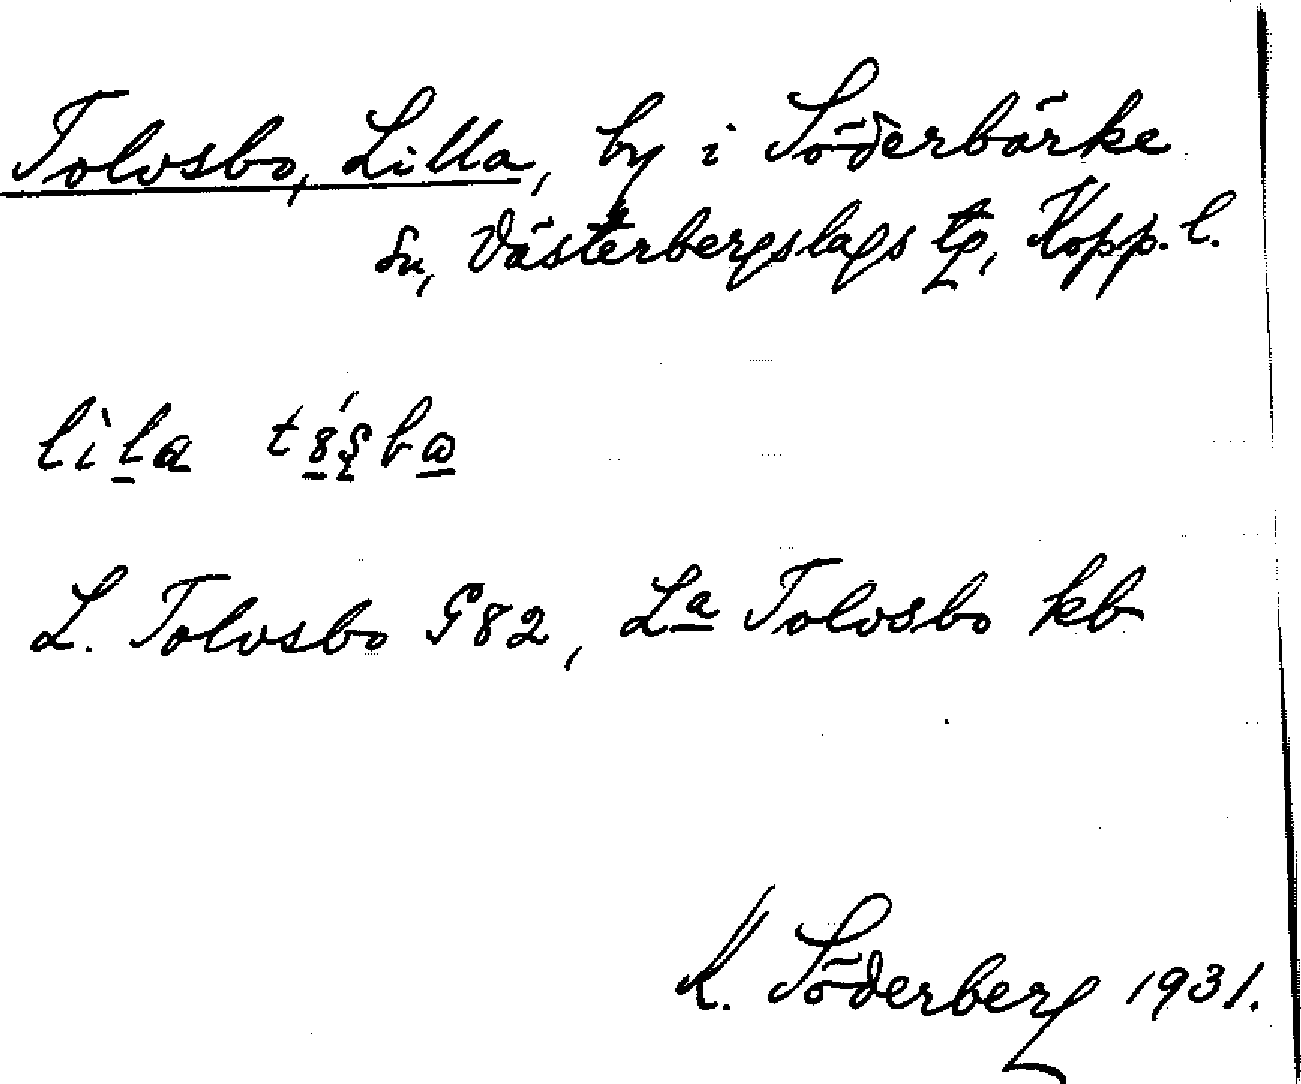 Tolvsbo, Lilla, by i Söderbärke
sn, Västerbergslags tg, Kopp. l.
lìla
L. Tolvsbo G82, La Tolvsbo kb
K. Söderberg 1931.